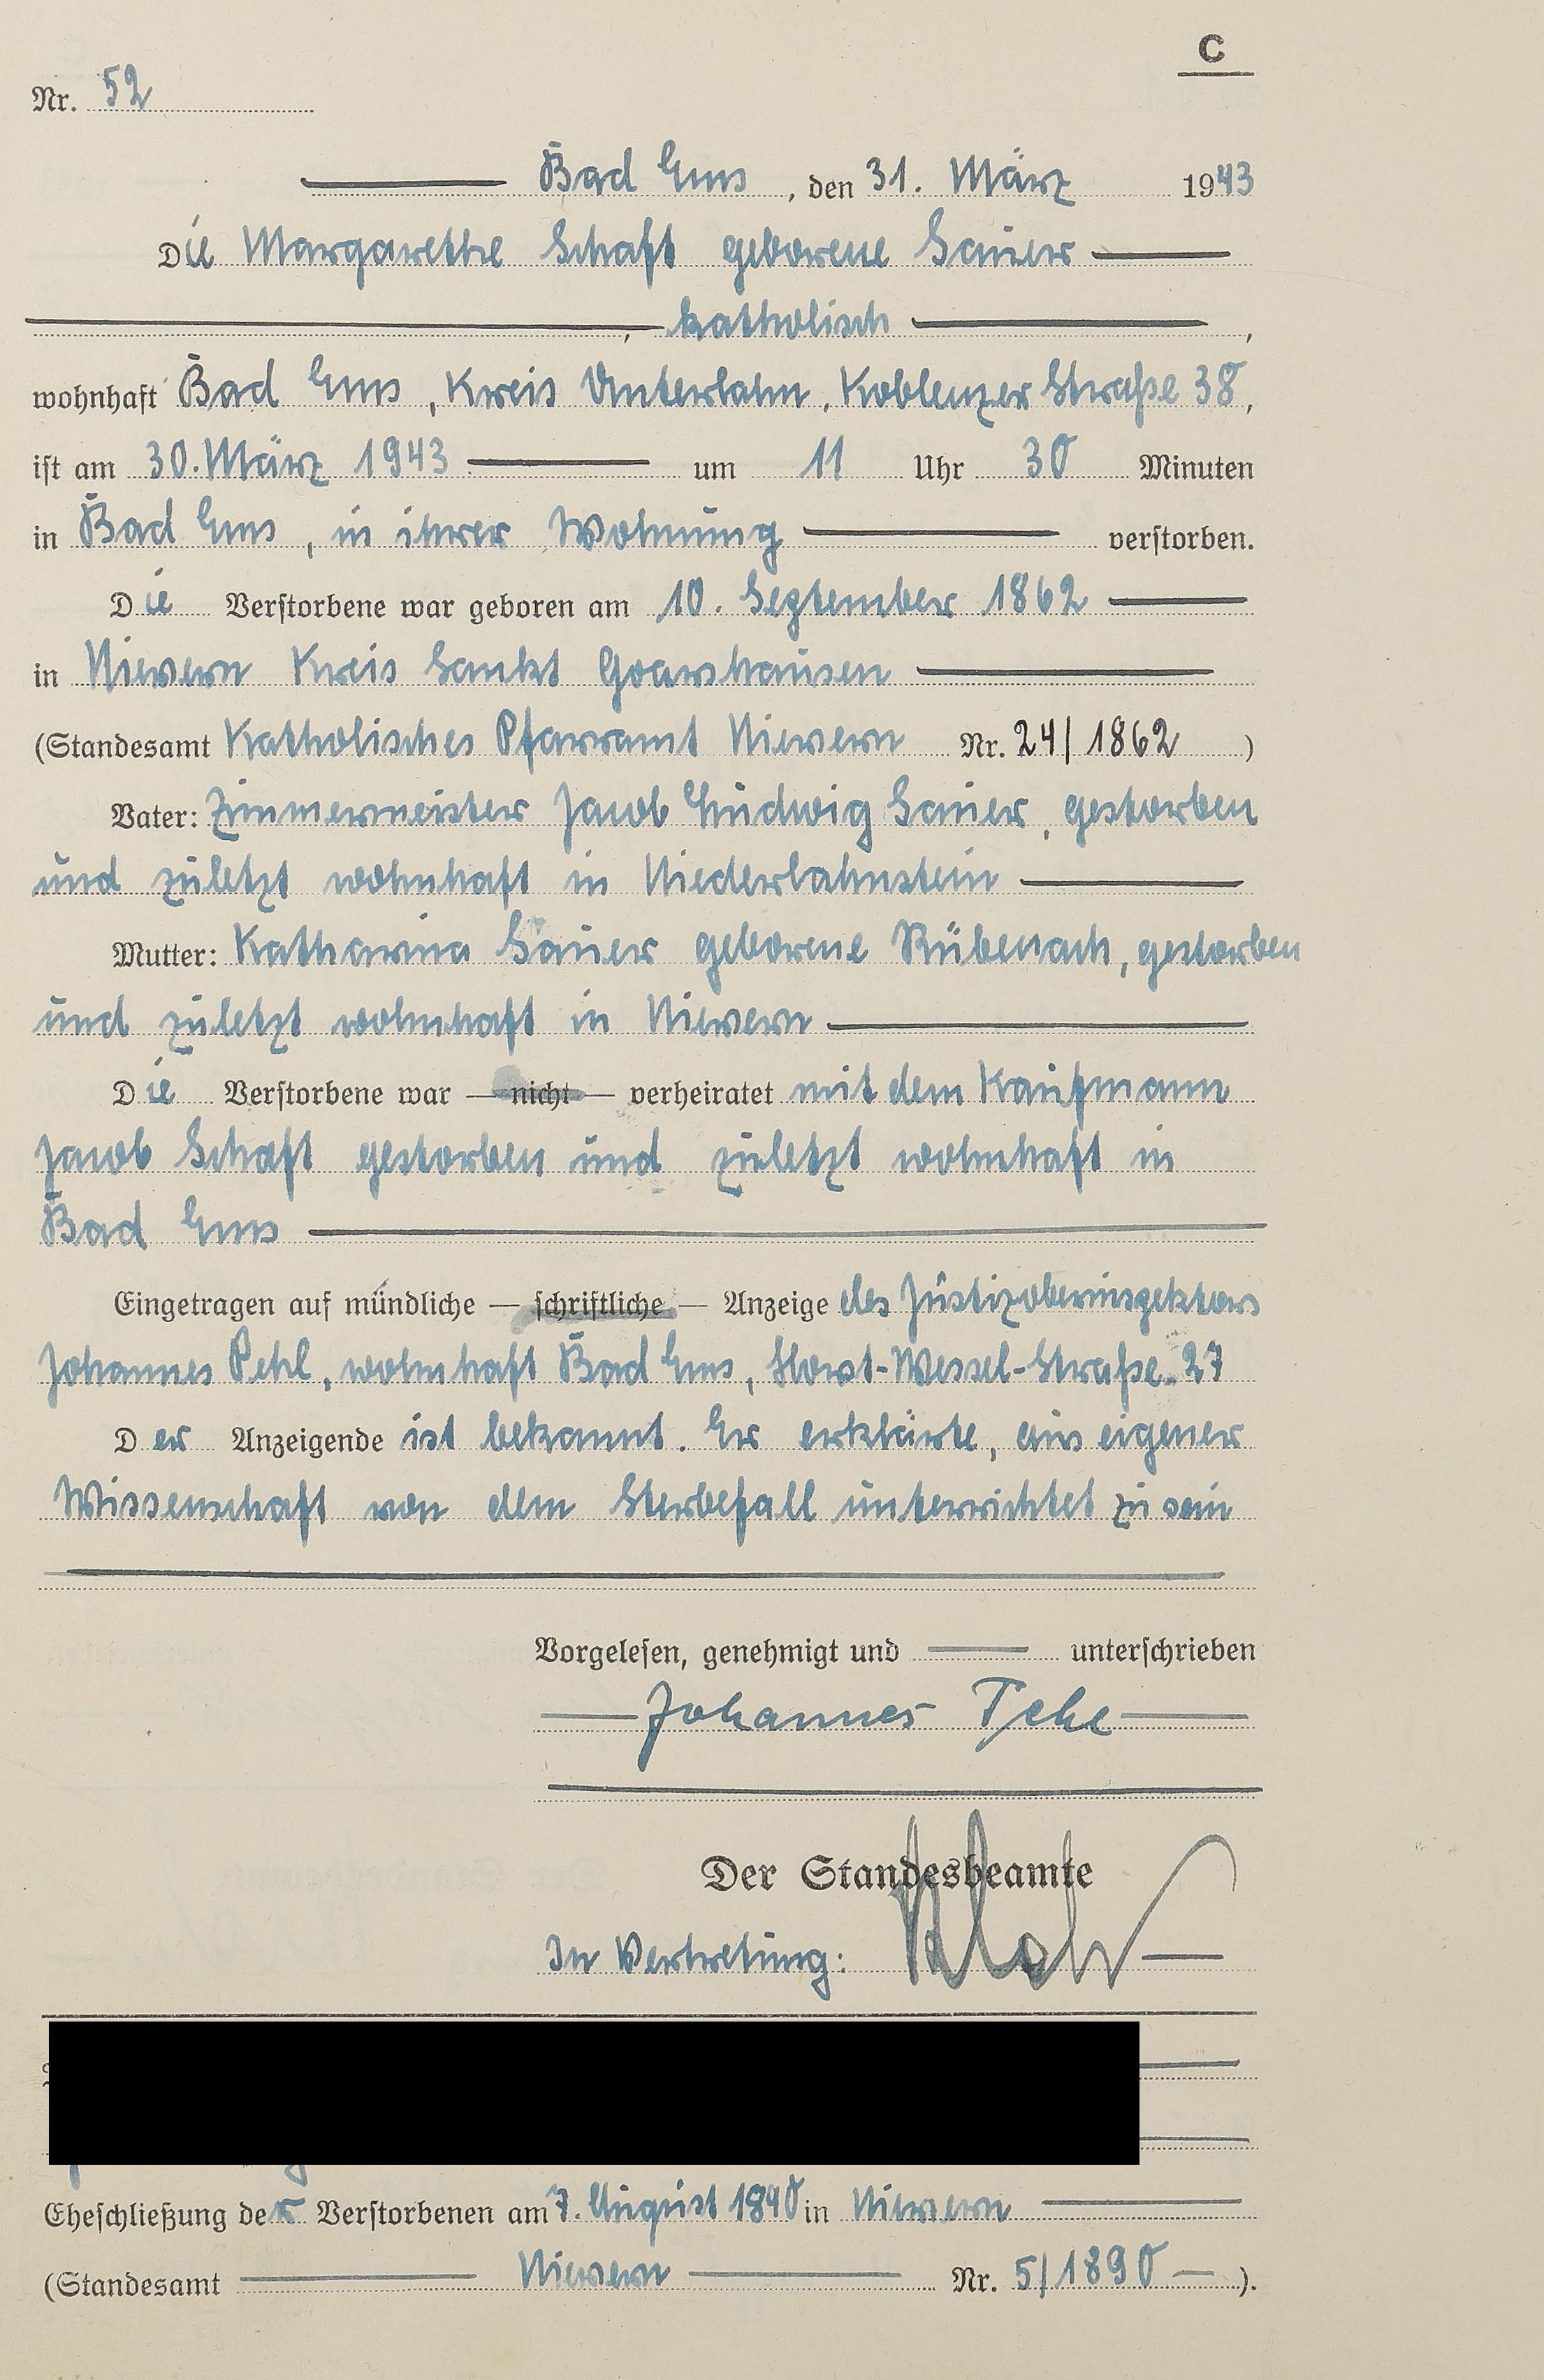 C
Nr. 52
Bad Ems, den 31. März 1943
Die Margarethe Schaft geborene Sauer
, katholisch ,
wohnhaft Bad Ems, Kreis Unterlahn, Koblenzer Straße 38,
ist am 30. März 1943 um 11 Uhr 30 Minuten
in Bad Ems, in ihrer Wohnung verstorben.
Die Verstorbene war geboren am 10. September 1862
in Nievern Kreis Sankt Goarshausen
(Standesamt Katholisches Pfarramt Nievern Nr. 24/1862 )
Vater: Zimmermeister Jacob Ludwig Sauer, gestorben
und zuletzt wohnhaft in Niederlahnstein
Mutter: Katharina Sauer geborene Rübenach, gestorben
und zuletzt wohnhaft in Nievern
Die Verstorbene war — nicht — verheiratet mit dem Kaufmann
Jacob Schaft gestorben und zuletzt wohnhaft in
Bad Ems
Eingetragen auf mündliche — schriftliche — Anzeige des Justizoberinspektors
Johannes Pehl, wohnhaft Bad Ems, Horst-Wessel-Straße 27
Der Anzeigende ist bekannt. Er erklärte, aus eigener
Wissenschaft von dem Sterbefall unterrichtet zu sein
Vorgelesen, genehmigt und unterschrieben
Johannes Pehl
Der Standesbeamte
In Vertretung:
Eheschließung der Verstorbenen am 7. August 1890 in Nievern
(Standesamt Nievern Nr. 5/1890 ).